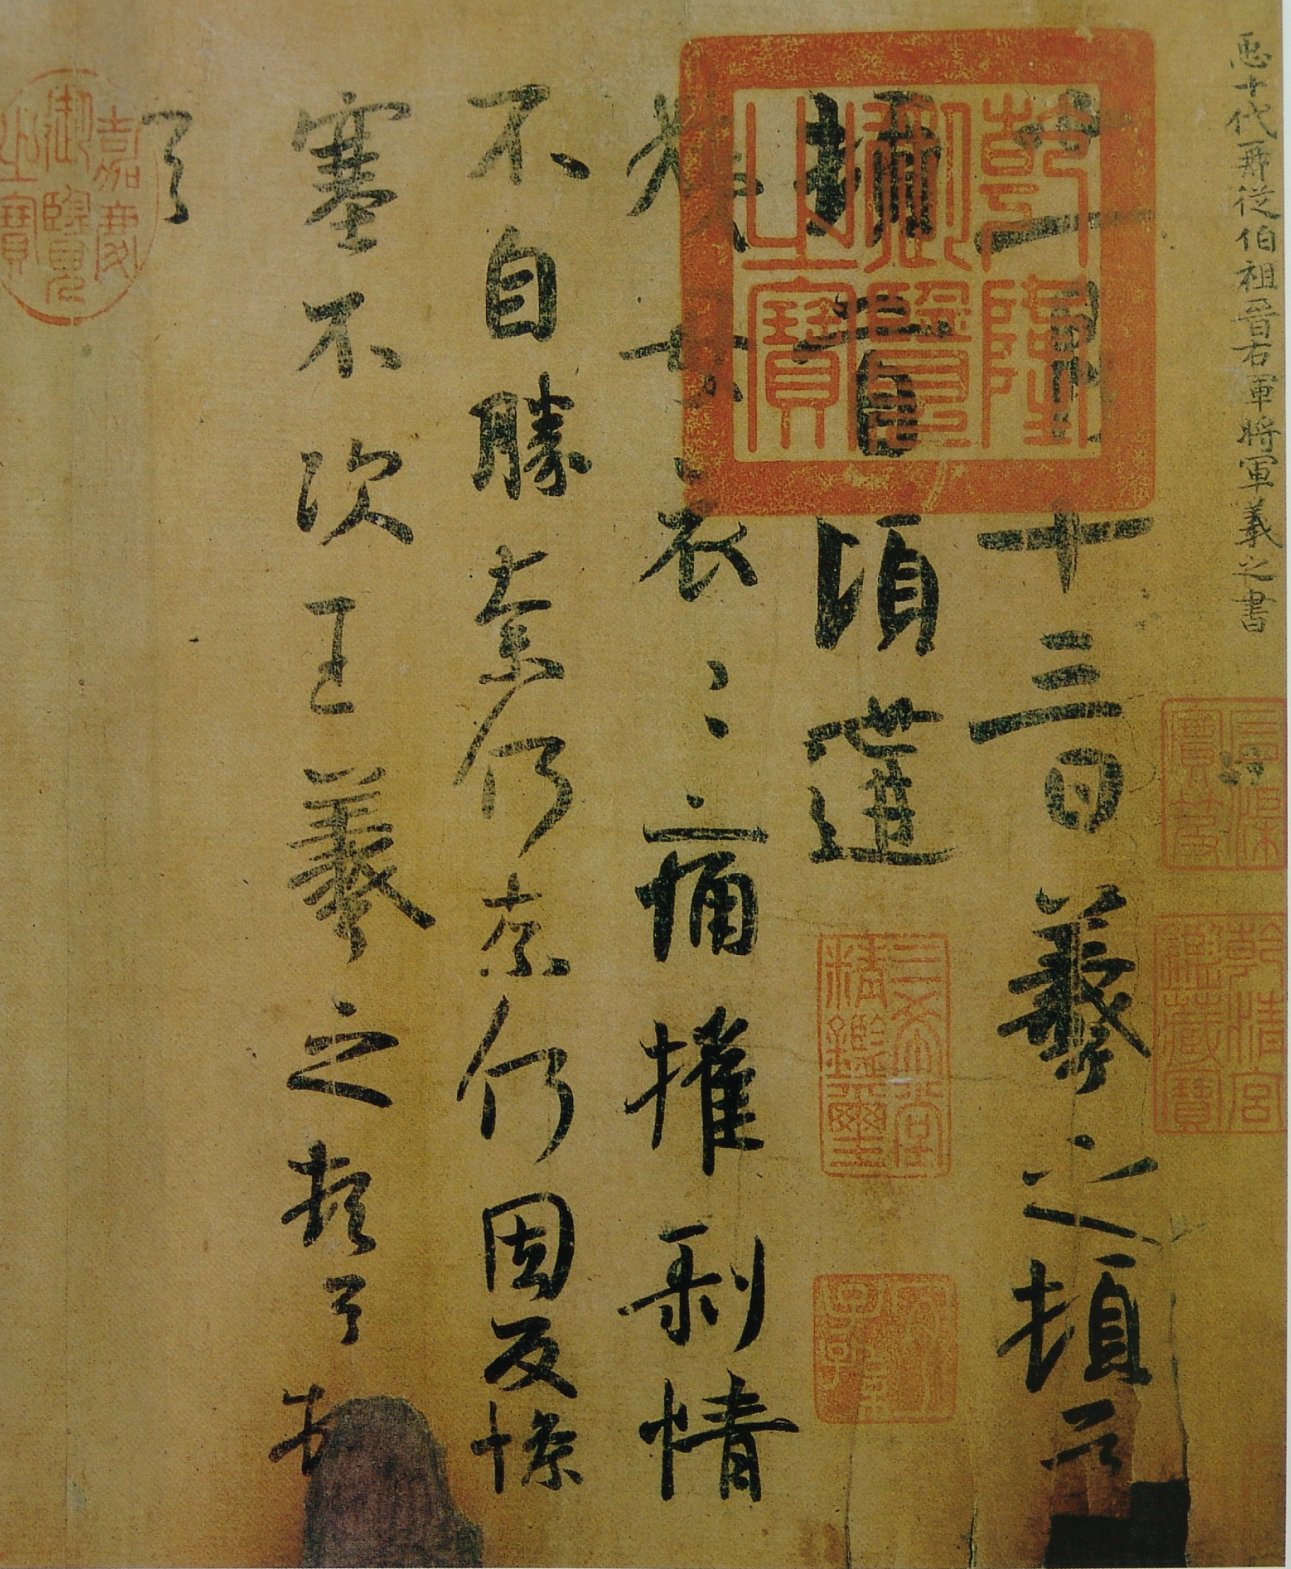 臣十代再從伯祖晉右軍將軍羲之書
十一月十三日羲之頓首
頓首頃遘
姨母哀〻痛摧剥情
不自勝奈何奈何因反慘
塞不次王羲之頓首頓
首
乾隆御覽之寶
石渠寶笈
乾清宮鑑藏寶
三希堂精鑑璽
嘉慶御覽之寶